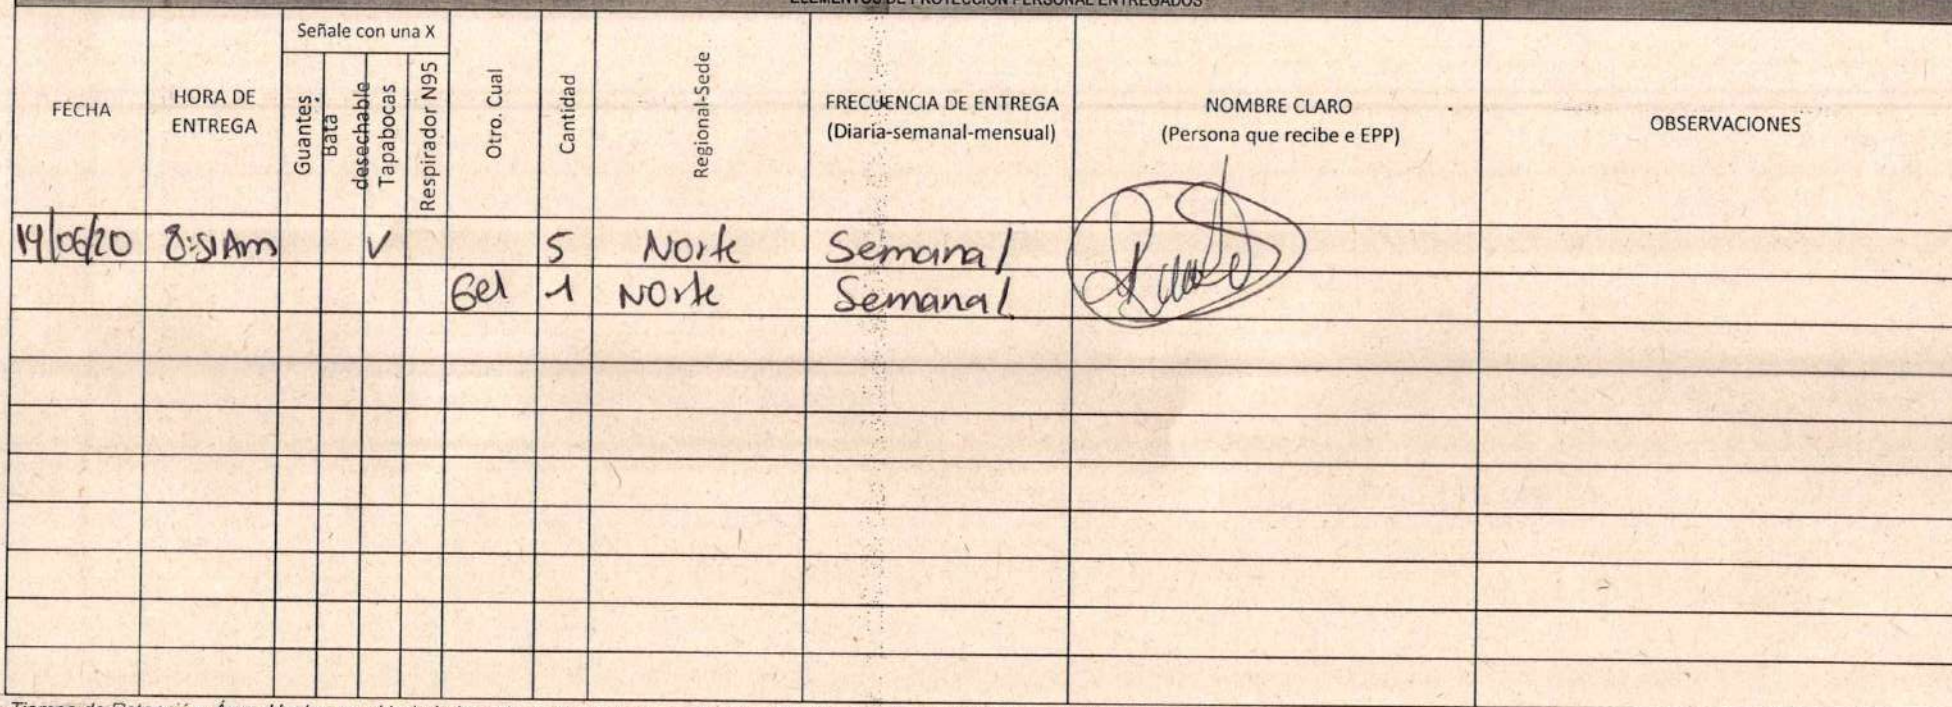 ELEMENTOS DE PROTECCIÓN PERSONAL ENTREGADOS
Señale con una X
FECHA
HORA DE
ENTREGA
Guantes
Bata
desechable
Tapabocas
Respirador N95
Otro. Cual
Cantidad
Regional-Sede
FRECUENCIA DE ENTREGA
(Diaria-semanal-mensual)
NOMBRE CLARO
(Persona que recibe e EPP)
OBSERVACIONES
14/06/20 8:51Am V 5 Norte Semanal
Gel 1 Norte Semanal